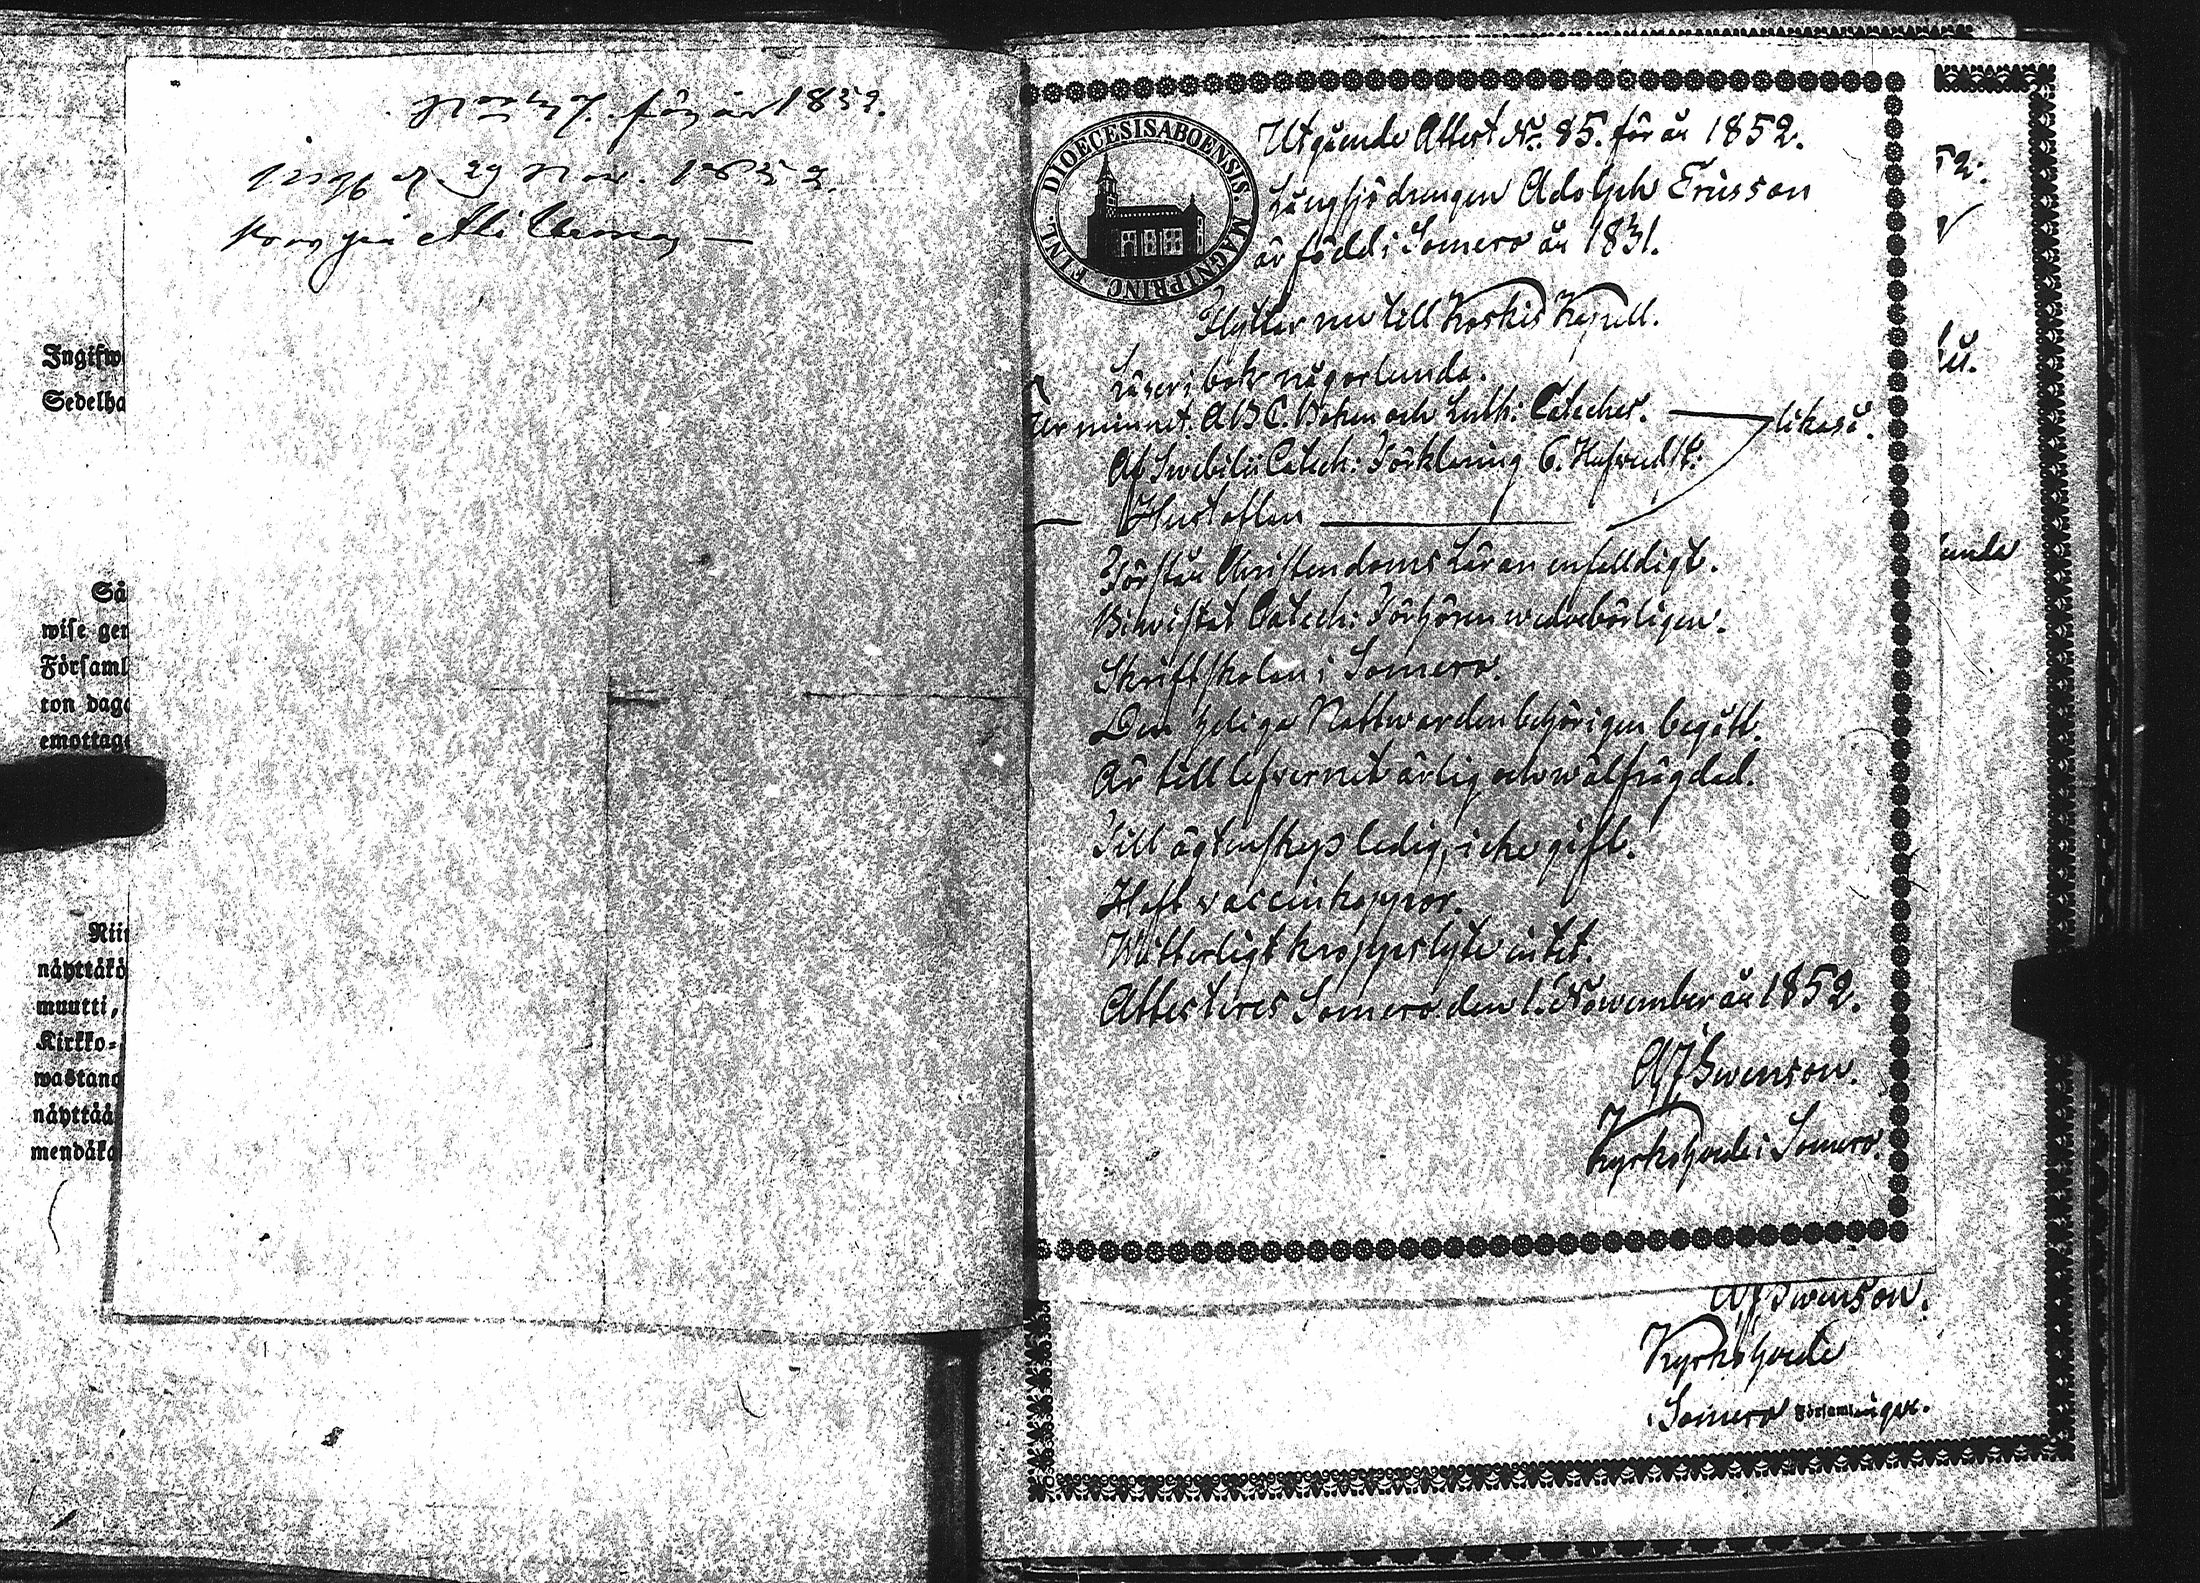 för år 1852.
29 Nov. 1852.
Ingifw
Sedelha
Så
wise ger
Församl
ton daga
emottag
Nii
näyttäkö
muutti,
Kirkko-
wastano
näyttää
mendäkö
DIOECESIS ABOENSIS. MAGNI PRINC. FINL.
Utgående Attest No. 85. för år 1852.
Långsjödrengen Adolph Ericsson
är född i Somero år 1831.
Flyttar nu till Koskis Kapell.
Läser i bok någorlunda.
Ur minnet. ABC. Boken och Luth: Cateches. likaså.
Af Swebilii Catech: Förklaring 6. Hufwudst:
Hustaflan
Förstår Christendoms Läran enfalldigt.
Biwistat Catech: Förhören wederbörligen.
Skriftskolan i Somero.
Den heliga Nattwarden behörigen begått.
Är till lefwernet ärlig och wälfrägdad.
Till ägtenskap ledig, icke gift.
Haft vaccinkoppor.
Witterligt kroppslyte intet.
Attesteres Somero den 1. November år 1852.
AJ Swenson.
Kyrkoherde i Somero.
52.
unda
AJ Swenson.
Kyrkoherde
i Somero Församlingar.